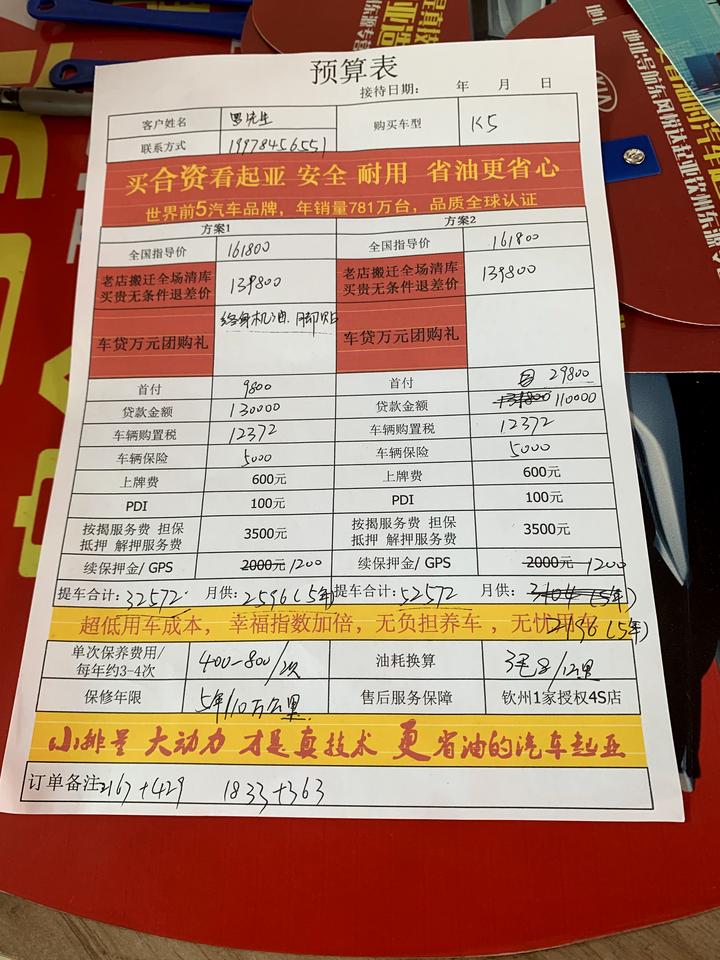 预算表
接待日期： 年 月 日
客户姓名 罗先生 购买车型 K5
联系方式 19978456551
买合资看起亚 安全 耐用 省油更省心
世界前5汽车品牌，年销量781万台，品质全球认证
方案1 方案2
全国指导价 161800 全国指导价 161800
老店搬迁全场清库 买贵无条件退差价 139800 老店搬迁全场清库 买贵无条件退差价 139800
车贷万元团购礼 终身机油. 脚贴 车贷万元团购礼
首付 9800 首付 29800
贷款金额 130000 贷款金额 131800 110000
车辆购置税 12372 车辆购置税 12372
车辆保险 5000 车辆保险 5000
上牌费 600元 上牌费 600元
PDI 100元 PDI 100元
按揭服务费 担保 抵押 解押服务费 3500元 按揭服务费 担保 抵押 解押服务费 3500元
续保押金/ GPS 2000元 1200 续保押金/ GPS 2000元 1200
提车合计：32572 月供：2596(5年) 提车合计：52572 月供：3104(5年)
超低用车成本，幸福指数加倍，无负担养车，无忧 2196(5年)
单次保养费用/ 每年约3-4次 400-800/次 油耗换算 3毛8/公里
保修年限 5年/10万公里 售后服务保障 钦州1家授权4S店
小排量 大动力 才是真技术 更省油的汽车起亚
订单备注 2167+429 1833+363
KIA